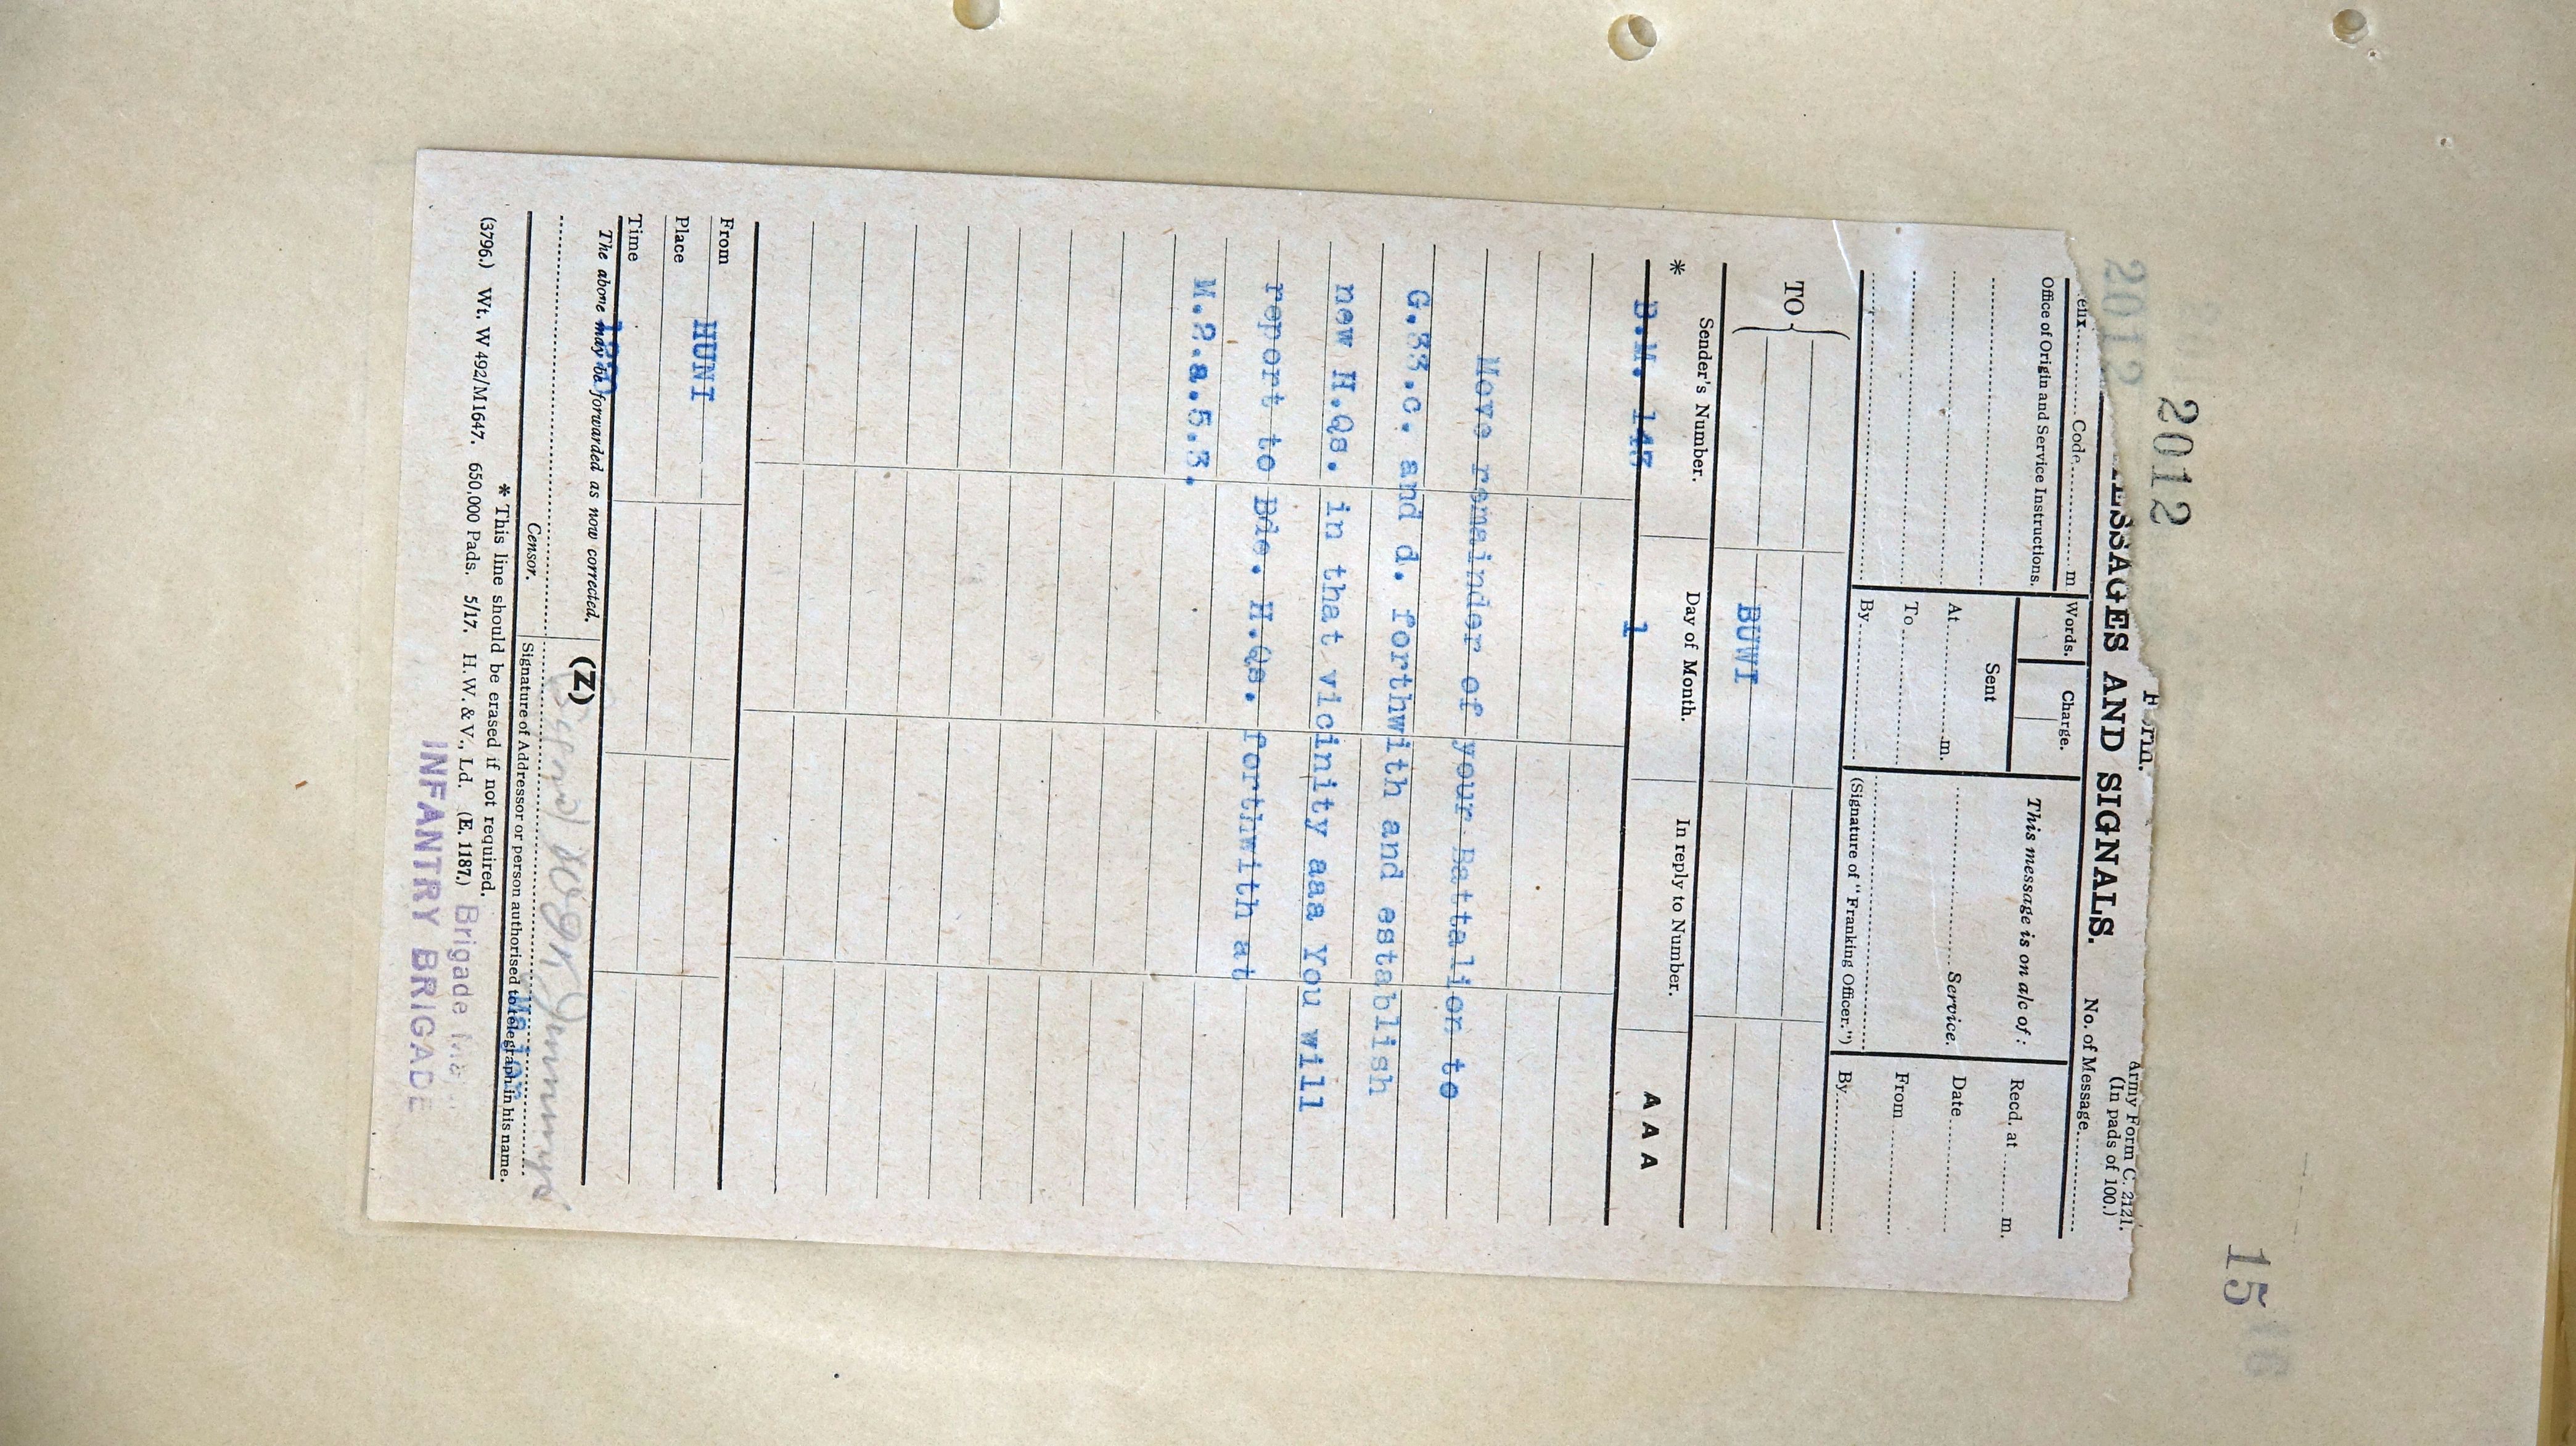 2012
2012
15
16
Army Form C. 2121.
(In pads of 100.)
ESSAGES AND SIGNALS. No. of Message
efix Code m
Words. Charge.
This message is on a/c of:
Recd. at m.
Office of Origin and Service Instructions.
Sent
Date
At m.
Service.
From
To
By
(Signature of "Franking Officer.")
By
TO
BUWI
* Sender's Number. Day of Month. In reply to Number. A A A
B.M. 143 1
Move remainder of your Battalion to
G.33.c. and d. forthwith and establish
new H.Qs. in that vicinity aaa You will
report to Bde. H.Qs. forthwith at
M.2.a.5.3.
From HUNI
Place
Time
The above may be forwarded as now corrected. (Z)
Censor. Signature of Addressor or person authorised to telegraph in his name.
Major
* This line should be erased if not required.
(3796.) Wt. W 492/M1647. 650,000 Pads. 5/17. H.W. & V., Ld. (E. 1187.)
Brigade
INFANTRY BRIGADE